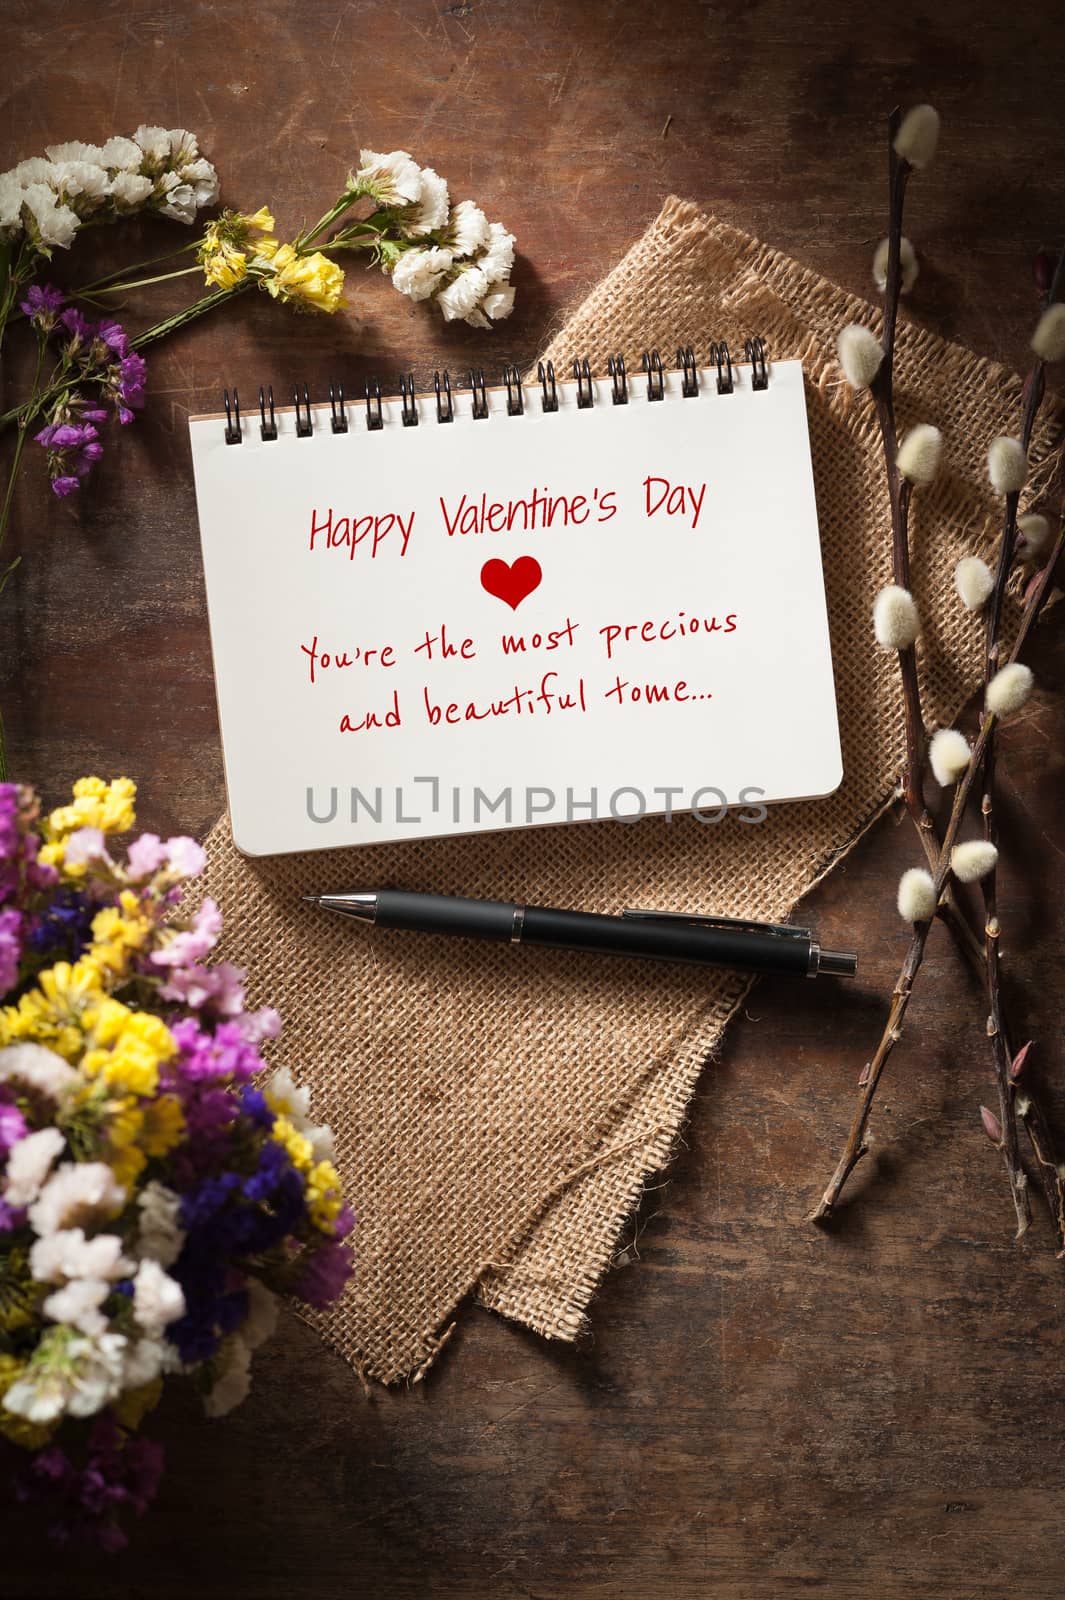 Happy Valentine's Day
You're the most precious
and beautiful tome...
UNLIMPHOTOS